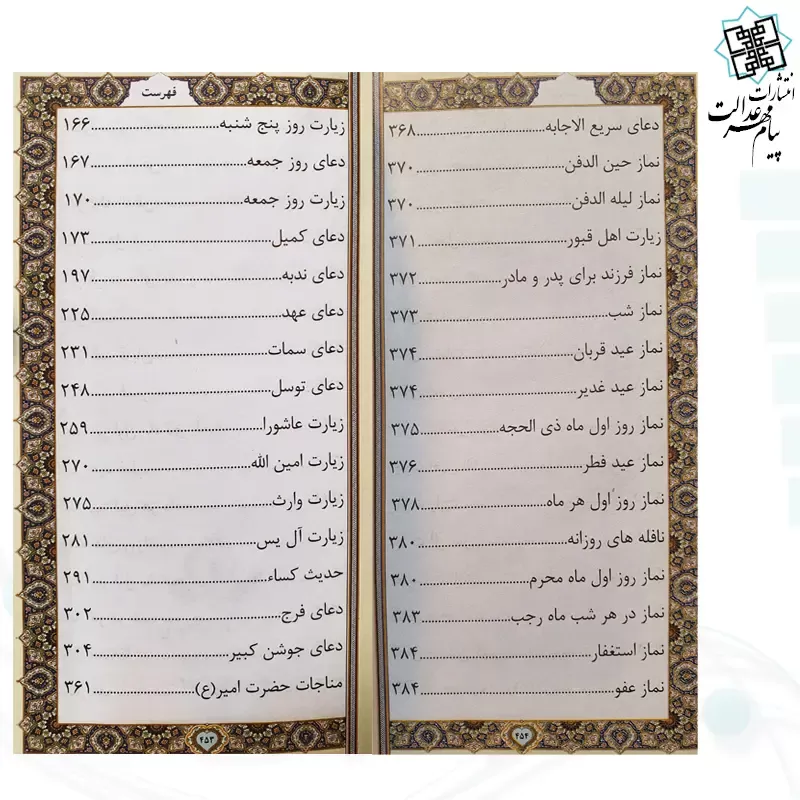 انتشارات
پیام مهر عدالت
دعای سریع الاجابه...............................۳۶۸
نماز حین الدفن...............................۳۷۰
نماز لیله الدفن...............................۳۷۰
زیارت اهل قبور...............................۳۷۱
نماز فرزند برای پدر و مادر...............................۳۷۲
نماز شب...............................۳۷۳
نماز عید قربان...............................۳۷۴
نماز عید غدیر...............................۳۷۴
نماز روز اول ماه ذی الحجه...............................۳۷۵
نماز عید فطر...............................۳۷۶
نماز روز اول هر ماه...............................۳۷۸
نافله های روزانه...............................۳۸۰
نماز روز اول ماه محرم...............................۳۸۰
نماز در هر شب ماه رجب...............................۳۸۳
نماز استغفار...............................۳۸۴
نماز عفو...............................۳۸۴
۴۵۴
فهرست
زیارت روز پنج شنبه...............................۱۶۶
دعای روز جمعه...............................۱۶۷
زیارت روز جمعه...............................۱۷۰
دعای کمیل...............................۱۷۳
دعای ندبه...............................۱۹۷
دعای عهد...............................۲۲۵
دعای سمات...............................۲۳۱
دعای توسل...............................۲۴۸
زیارت عاشورا...............................۲۵۹
زیارت امین الله...............................۲۷۰
زیارت وارث...............................۲۷۵
زیارت آل یس...............................۲۸۱
حدیث کساء...............................۲۹۱
دعای فرج...............................۳۰۲
دعای جوشن کبیر...............................۳۰۴
مناجات حضرت امیر(ع)...............................۳۶۱
۴۵۳